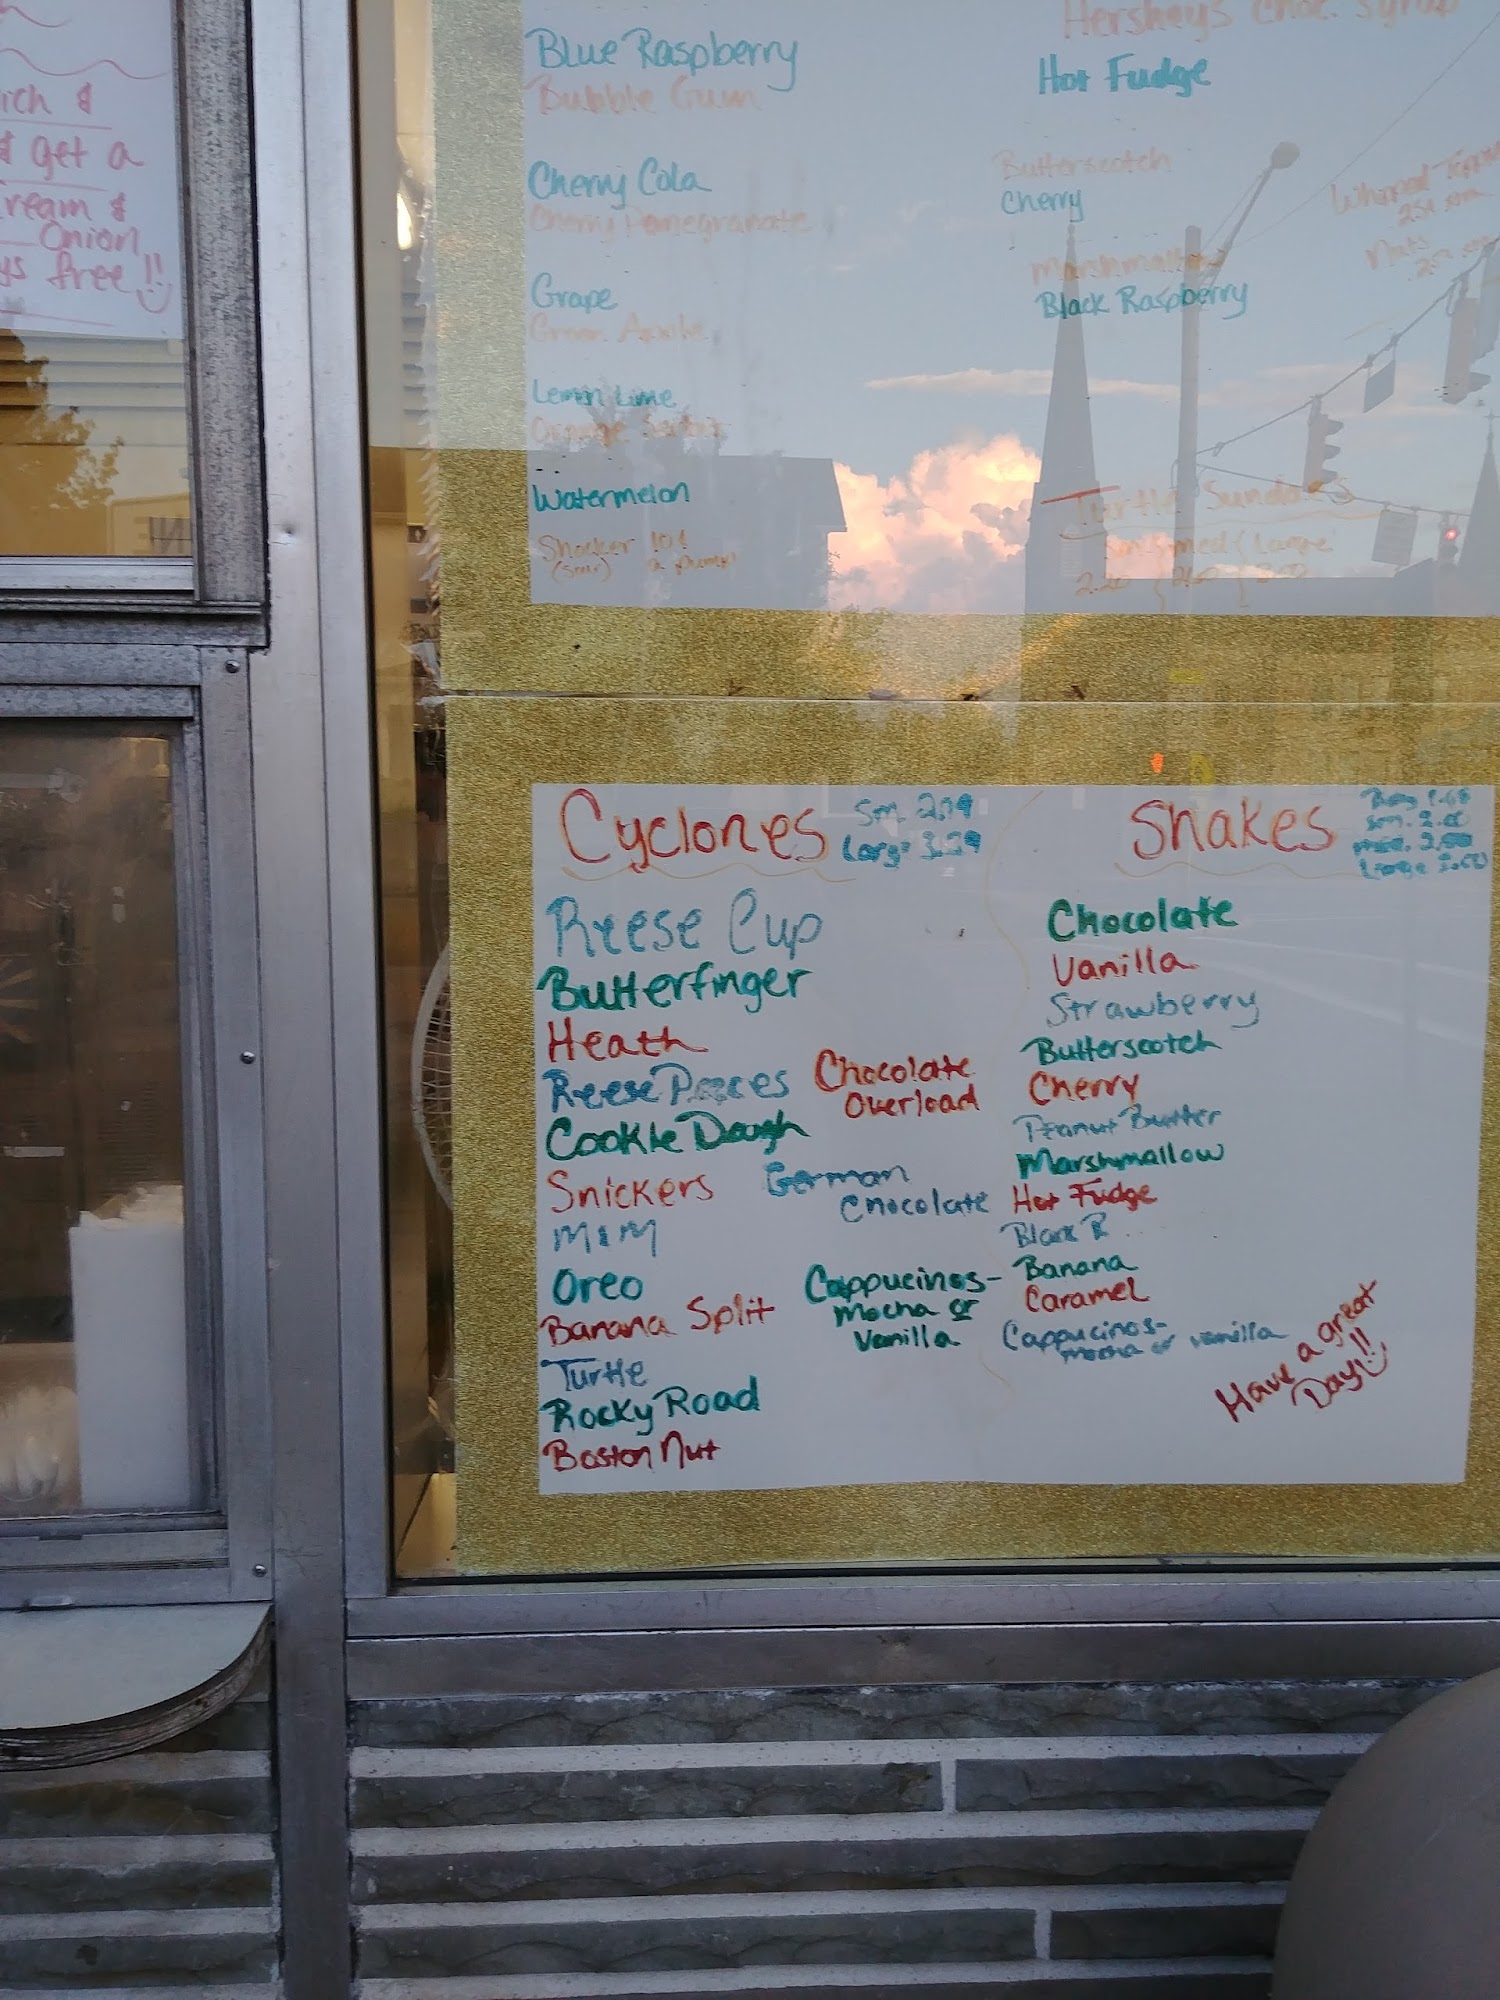 ich &
& get a
ream &
Onion
ys free!!
Blue Raspberry
Bubble Gum
Cherry Cola
Cherry Pomegranate
Grape
Green Apple
Lemon Lime
Watermelon
Shocker 10¢
(sour) a pump
Hershey's Choc. Syrup
Hot Fudge
Butterscotch
Cherry
Marshmallow
Black Raspberry
Whipped Topping
Nuts
Turtle Sundaes
Sm Med Large
Cyclones
Sm. 2.79
Large 3.29
Reese Cup
Butterfinger
Heath
Reese Pieces
Cookie Dough
Snickers
M&M
Oreo
Banana Split
Turtle
Rocky Road
Boston Nut
Chocolate
Overload
German
Chocolate
Cappucinos-
Mocha or
Vanilla
Shakes
Sm. 2.00
Large
Chocolate
Vanilla
Strawberry
Butterscotch
Cherry
Peanut Butter
Marshmallow
Hot Fudge
Black R
Banana
Caramel
Cappucinos-
mocha or vanilla
Have a great
Day!!